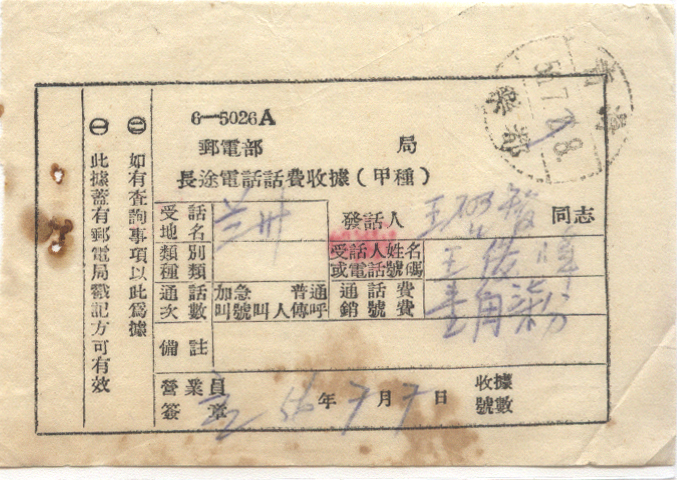 6-5026A
郵電部 局
長途電話話費收據（甲種）
受話地名 兰州
發話人 王 發 同志
類別種類
受話人姓名或電話號碼 王
通話次數 加急 普通 叫號 叫人 傳呼
通話費銷號費 壹角 分
備註
營業員簽章
56年7月7日
收據號數
㊁ 如有查詢事項以此爲據
㊀ 此據蓋有郵電局戳記方可有效
56.7.